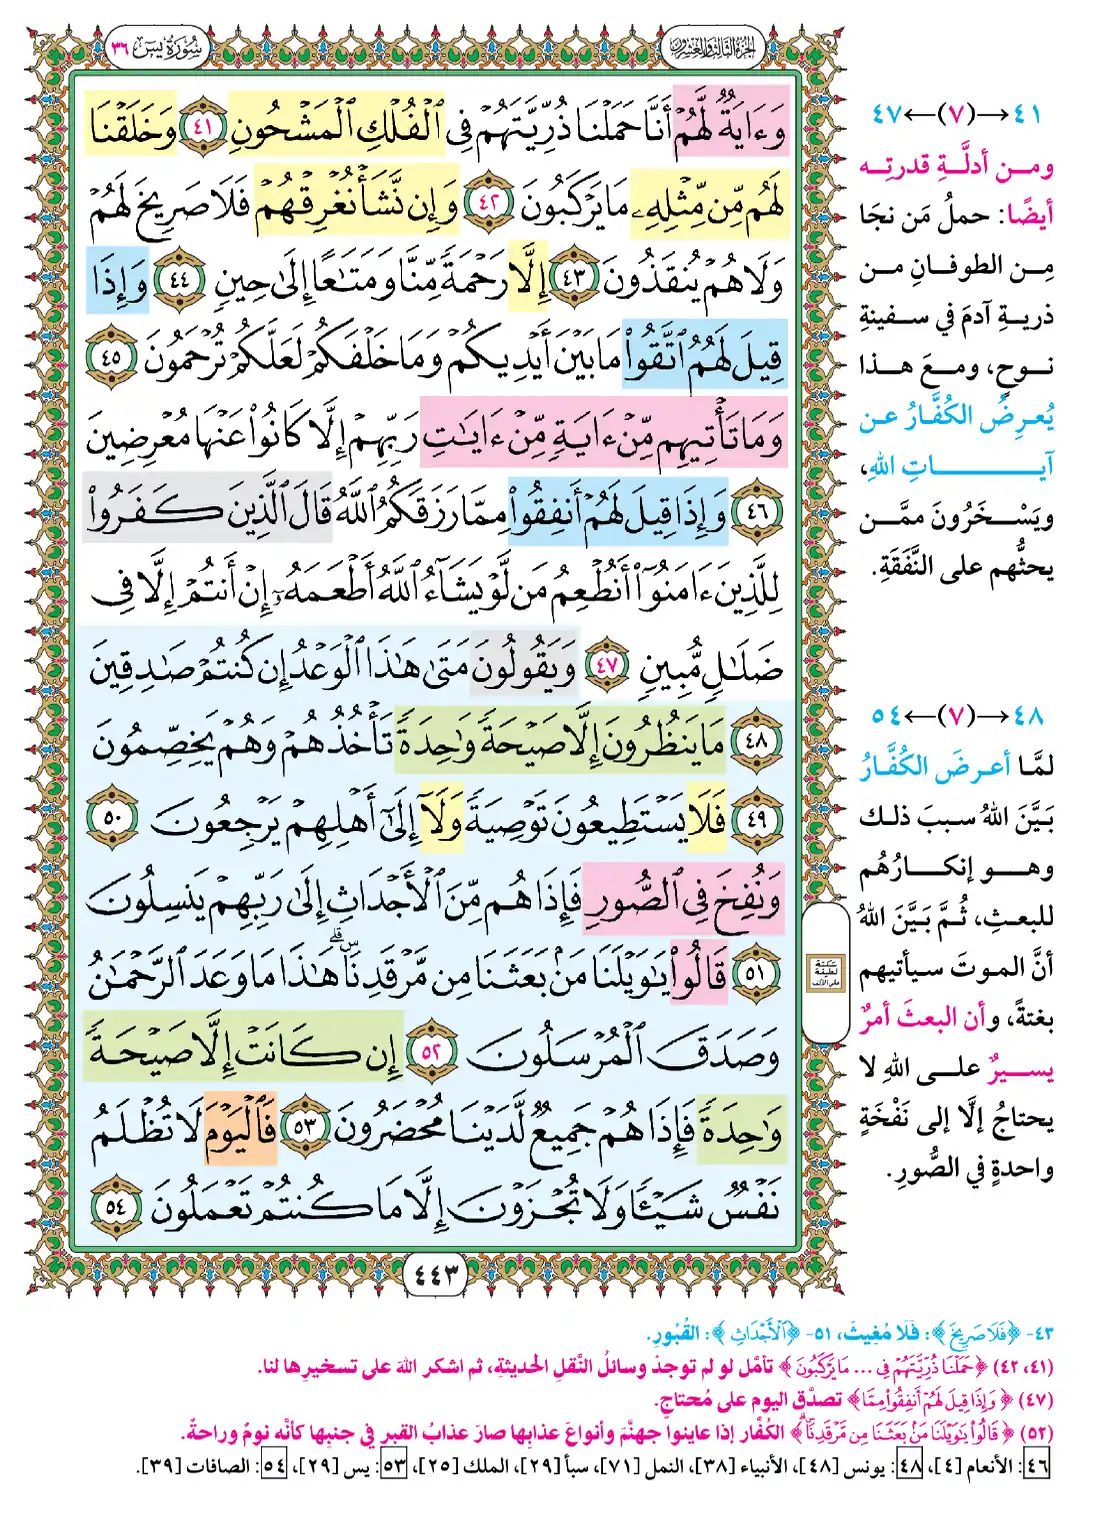 سُورَةُ يسٓ ٣٦
الجزء الثالث والعشرون
وَءَايَةٞ لَّهُمۡ أَنَّا حَمَلۡنَا ذُرِّيَّتَهُمۡ فِي ٱلۡفُلۡكِ ٱلۡمَشۡحُونِ ٤١ وَخَلَقۡنَا
لَهُم مِّن مِّثۡلِهِۦ مَا يَرۡكَبُونَ ٤٢ وَإِن نَّشَأۡ نُغۡرِقۡهُمۡ فَلَا صَرِيخَ لَهُمۡ
وَلَا هُمۡ يُنقَذُونَ ٤٣ إِلَّا رَحۡمَةٗ مِّنَّا وَمَتَٰعًا إِلَىٰ حِينٖ ٤٤ وَإِذَا
قِيلَ لَهُمُ ٱتَّقُواْ مَا بَيۡنَ أَيۡدِيكُمۡ وَمَا خَلۡفَكُمۡ لَعَلَّكُمۡ تُرۡحَمُونَ ٤٥
وَمَا تَأۡتِيهِم مِّنۡ ءَايَةٖ مِّنۡ ءَايَٰتِ رَبِّهِمۡ إِلَّا كَانُواْ عَنۡهَا مُعۡرِضِينَ
٤٦ وَإِذَا قِيلَ لَهُمۡ أَنفِقُواْ مِمَّا رَزَقَكُمُ ٱللَّهُ قَالَ ٱلَّذِينَ كَفَرُواْ
لِلَّذِينَ ءَامَنُوٓاْ أَنُطۡعِمُ مَن لَّوۡ يَشَآءُ ٱللَّهُ أَطۡعَمَهُۥٓ إِنۡ أَنتُمۡ إِلَّا فِي
ضَلَٰلٖ مُّبِينٖ ٤٧ وَيَقُولُونَ مَتَىٰ هَٰذَا ٱلۡوَعۡدُ إِن كُنتُمۡ صَٰدِقِينَ
٤٨ مَا يَنظُرُونَ إِلَّا صَيۡحَةٗ وَٰحِدَةٗ تَأۡخُذُهُمۡ وَهُمۡ يَخِصِّمُونَ
٤٩ فَلَا يَسۡتَطِيعُونَ تَوۡصِيَةٗ وَلَآ إِلَىٰٓ أَهۡلِهِمۡ يَرۡجِعُونَ ٥٠
وَنُفِخَ فِي ٱلصُّورِ فَإِذَا هُم مِّنَ ٱلۡأَجۡدَاثِ إِلَىٰ رَبِّهِمۡ يَنسِلُونَ
٥١ قَالُواْ يَٰوَيۡلَنَا مَنۢ بَعَثَنَا مِن مَّرۡقَدِنَاۜۗ هَٰذَا مَا وَعَدَ ٱلرَّحۡمَٰنُ
وَصَدَقَ ٱلۡمُرۡسَلُونَ ٥٢ إِن كَانَتۡ إِلَّا صَيۡحَةٗ
وَٰحِدَةٗ فَإِذَا هُمۡ جَمِيعٞ لَّدَيۡنَا مُحۡضَرُونَ ٥٣ فَٱلۡيَوۡمَ لَا تُظۡلَمُ
نَفۡسٞ شَيۡـٔٗا وَلَا تُجۡزَوۡنَ إِلَّا مَا كُنتُمۡ تَعۡمَلُونَ ٥٤
٤٤٣
٤١→(٧)←٤٧
ومـن أدلَّـةِ قدرتِـه
أيضًا: حملُ مَن نجَا
مِـن الطوفـانِ مـن
ذريـةِ آدمَ في سـفينةِ
نـوحٍ، ومـعَ هـذا
يُعـرِضُ الكُفَّـارُ عـن
آيـاتِ اللهِ،
ويَسْـخَرُونَ ممَّـن
يحثُّهم على النَّفَقَةِ.
٤٨→(٧)←٥٤
لمَّـا أعـرضَ الكُفَّـارُ
بَـيَّنَ اللهُ سـببَ ذلـك
وهـو إنكـارُهُم
للبعـثِ، ثُـمَّ بَـيَّنَ اللهُ
أنَّ المـوتَ سـيأتيهم
بغتةً، وأن البعثَ أمرٌ
يسـيرٌ علـى اللهِ لا
يحتاجُ إلَّا إلى نَفْخَةٍ
واحدةٍ في الصُّورِ.
سكتة
لطيفة
على الألف
٤٣- ﴿فَلَا صَرِيخَ﴾: فَلَا مُغِيثَ، ٥١- ﴿ٱلۡأَجۡدَاثِ﴾: القُبُورِ.
(٤١، ٤٢) ﴿حَمَلۡنَا ذُرِّيَّتَهُمۡ فِي ... مَا يَرۡكَبُونَ﴾ تأمَّل لو لم توجدْ وسائلُ النَّقلِ الحديثةِ، ثم اشكر اللهَ على تسخيرِها لنا.
(٤٧) ﴿وَإِذَا قِيلَ لَهُمۡ أَنفِقُواْ مِمَّا﴾ تصدَّق اليوم على مُحتاجٍ.
(٥٢) ﴿قَالُواْ يَٰوَيۡلَنَا مَنۢ بَعَثَنَا مِن مَّرۡقَدِنَاۜۗ﴾ الكُفَّار إذا عاينوا جهنَّمَ وأنواعَ عذابِها صارَ عذابُ القبرِ في جنبِها كأنَّه نومٌ وراحةٌ.
٤٦: الأنعام [٤]، ٤٨: يونس [٤٨]، الأنبياء [٣٨]، النمل [٧١]، سبأ [٢٩]، الملك [٢٥]، ٥٣: يس [٢٩]، ٥٤: الصافات [٣٩].